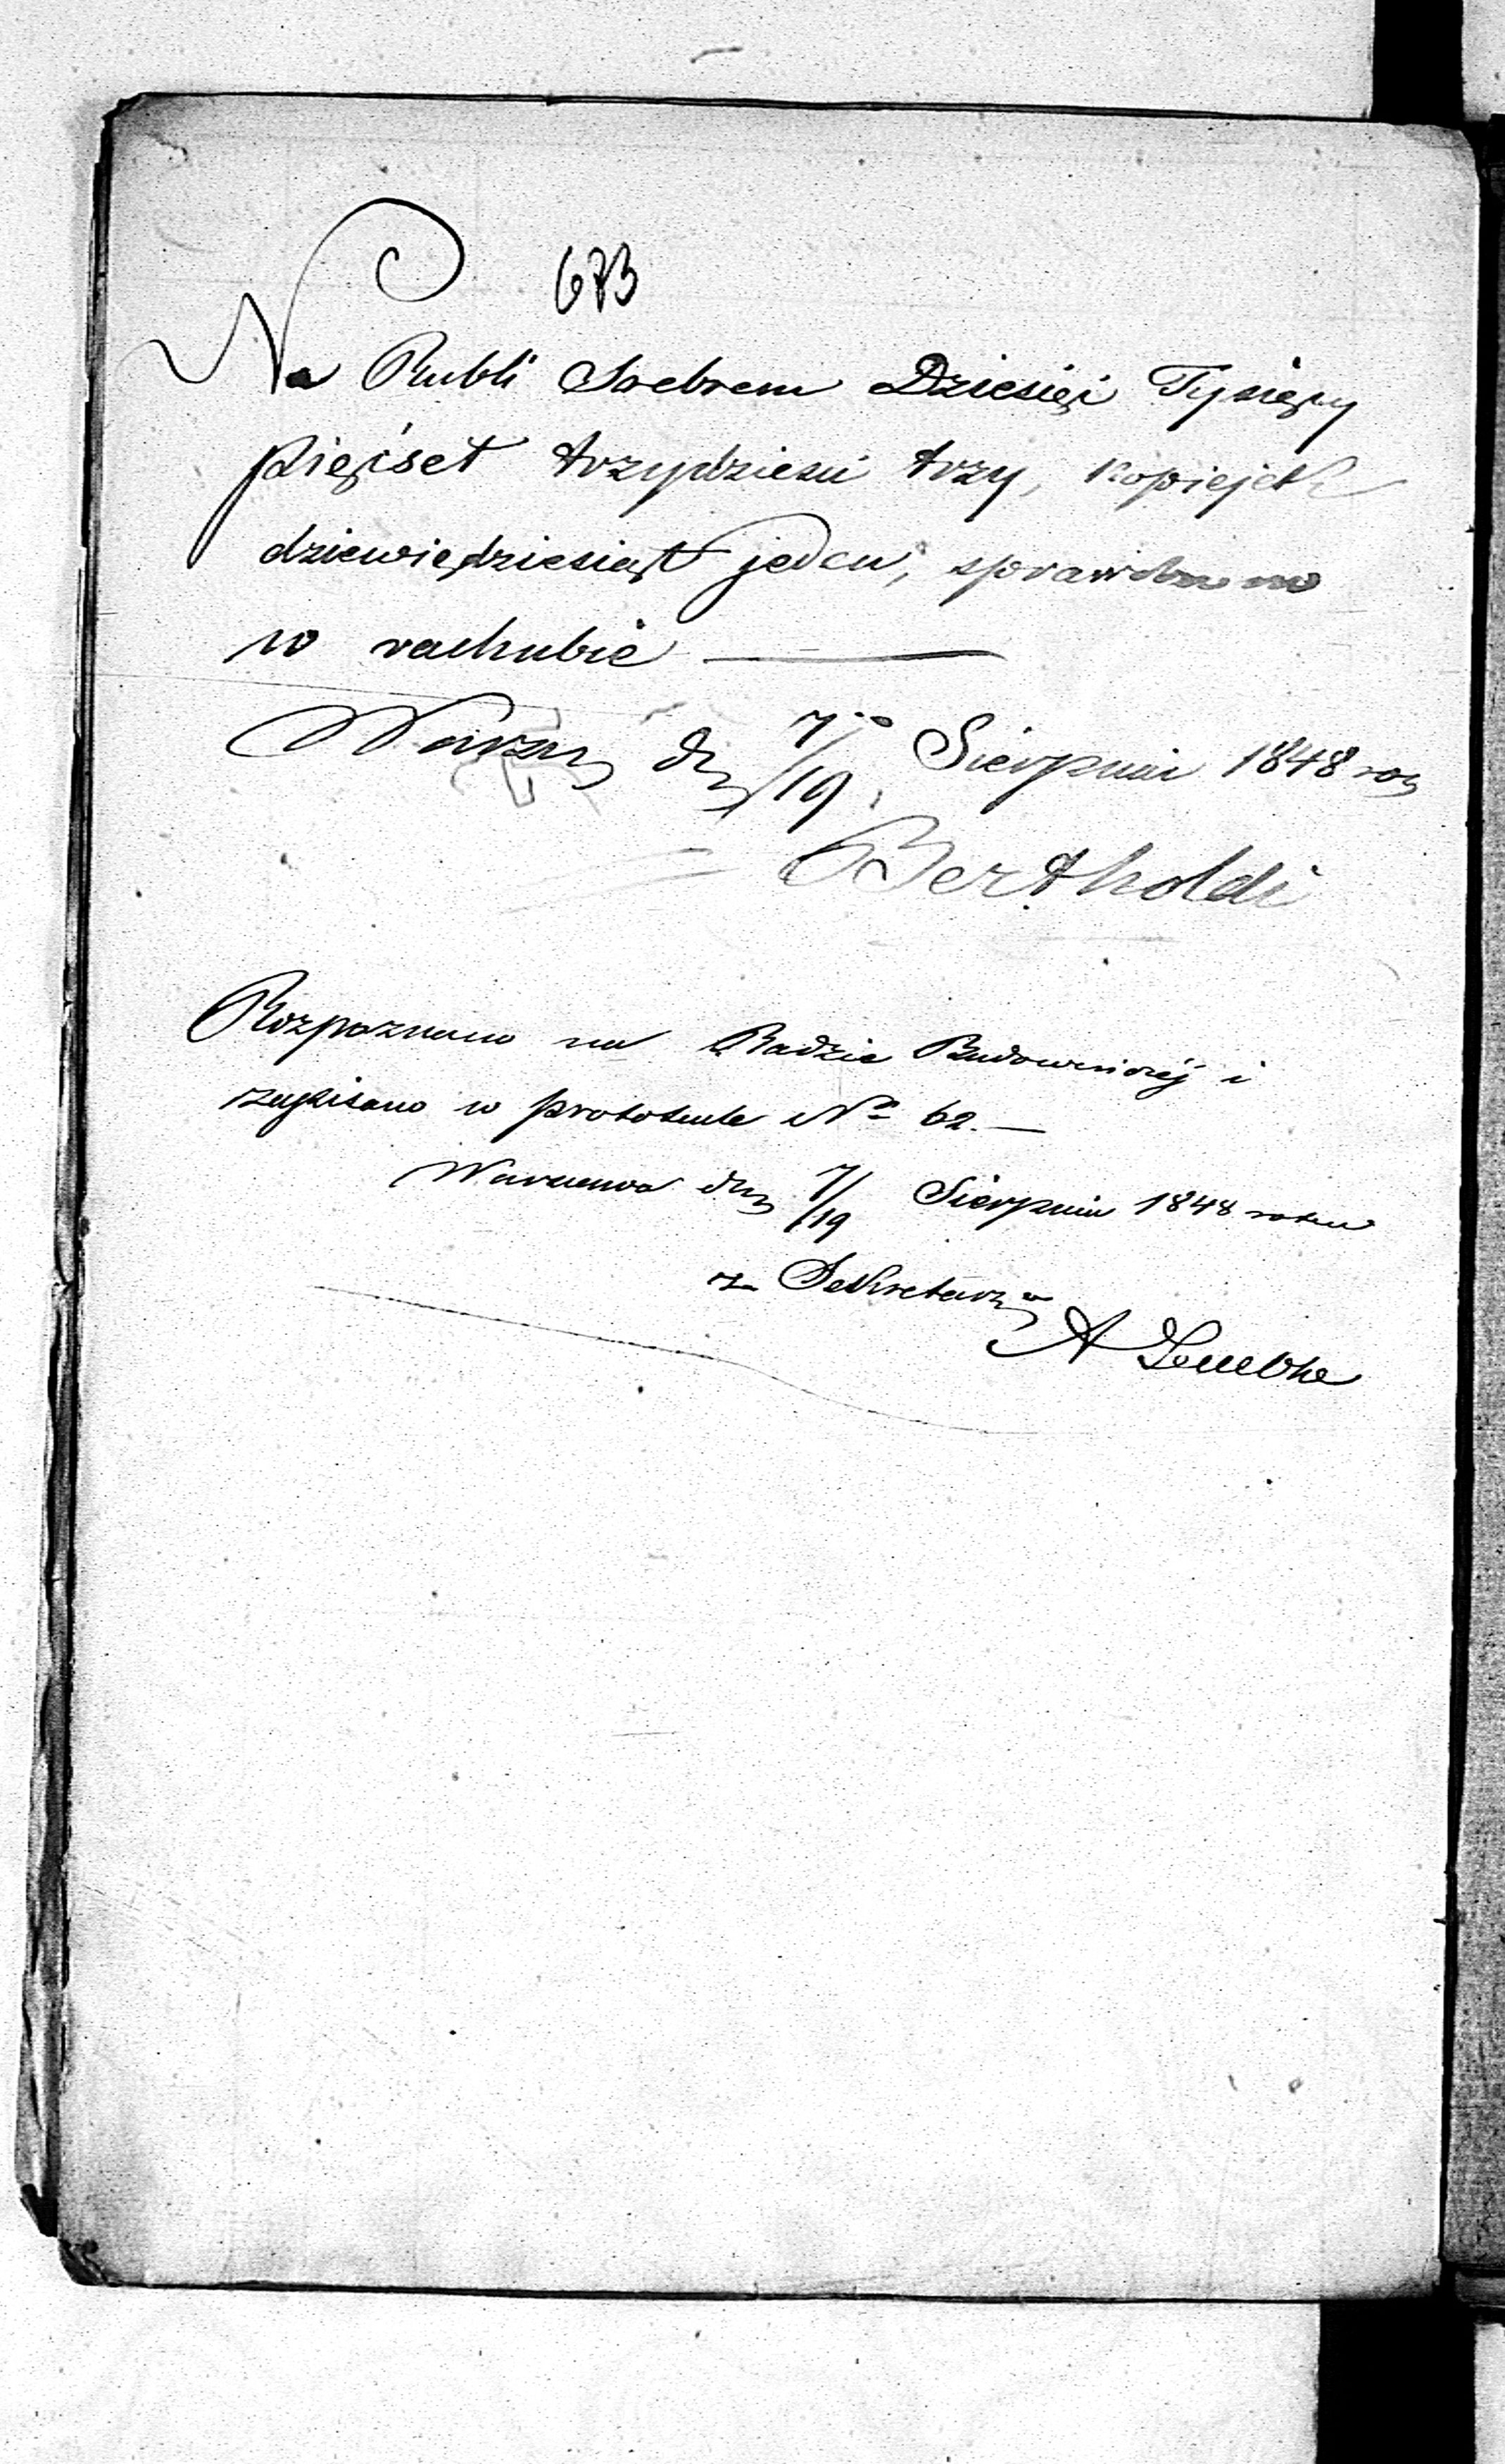 673
Na Rubli Srebrem Dziesięć Tysięcy
pięćset trzydzieści trzy, kopiejek
dziewiędziesiąt jeden, sprawdzono
w rachubie
Warsz dn 7/19 Sierpnia 1848 rok
Bertholdi
Rozpoznano na Radzie Budowniczéj i
zapisano w protokule No 62.
Warszawa dn 7/19 Sierpnia 1848 roku
za Sekretarza
A